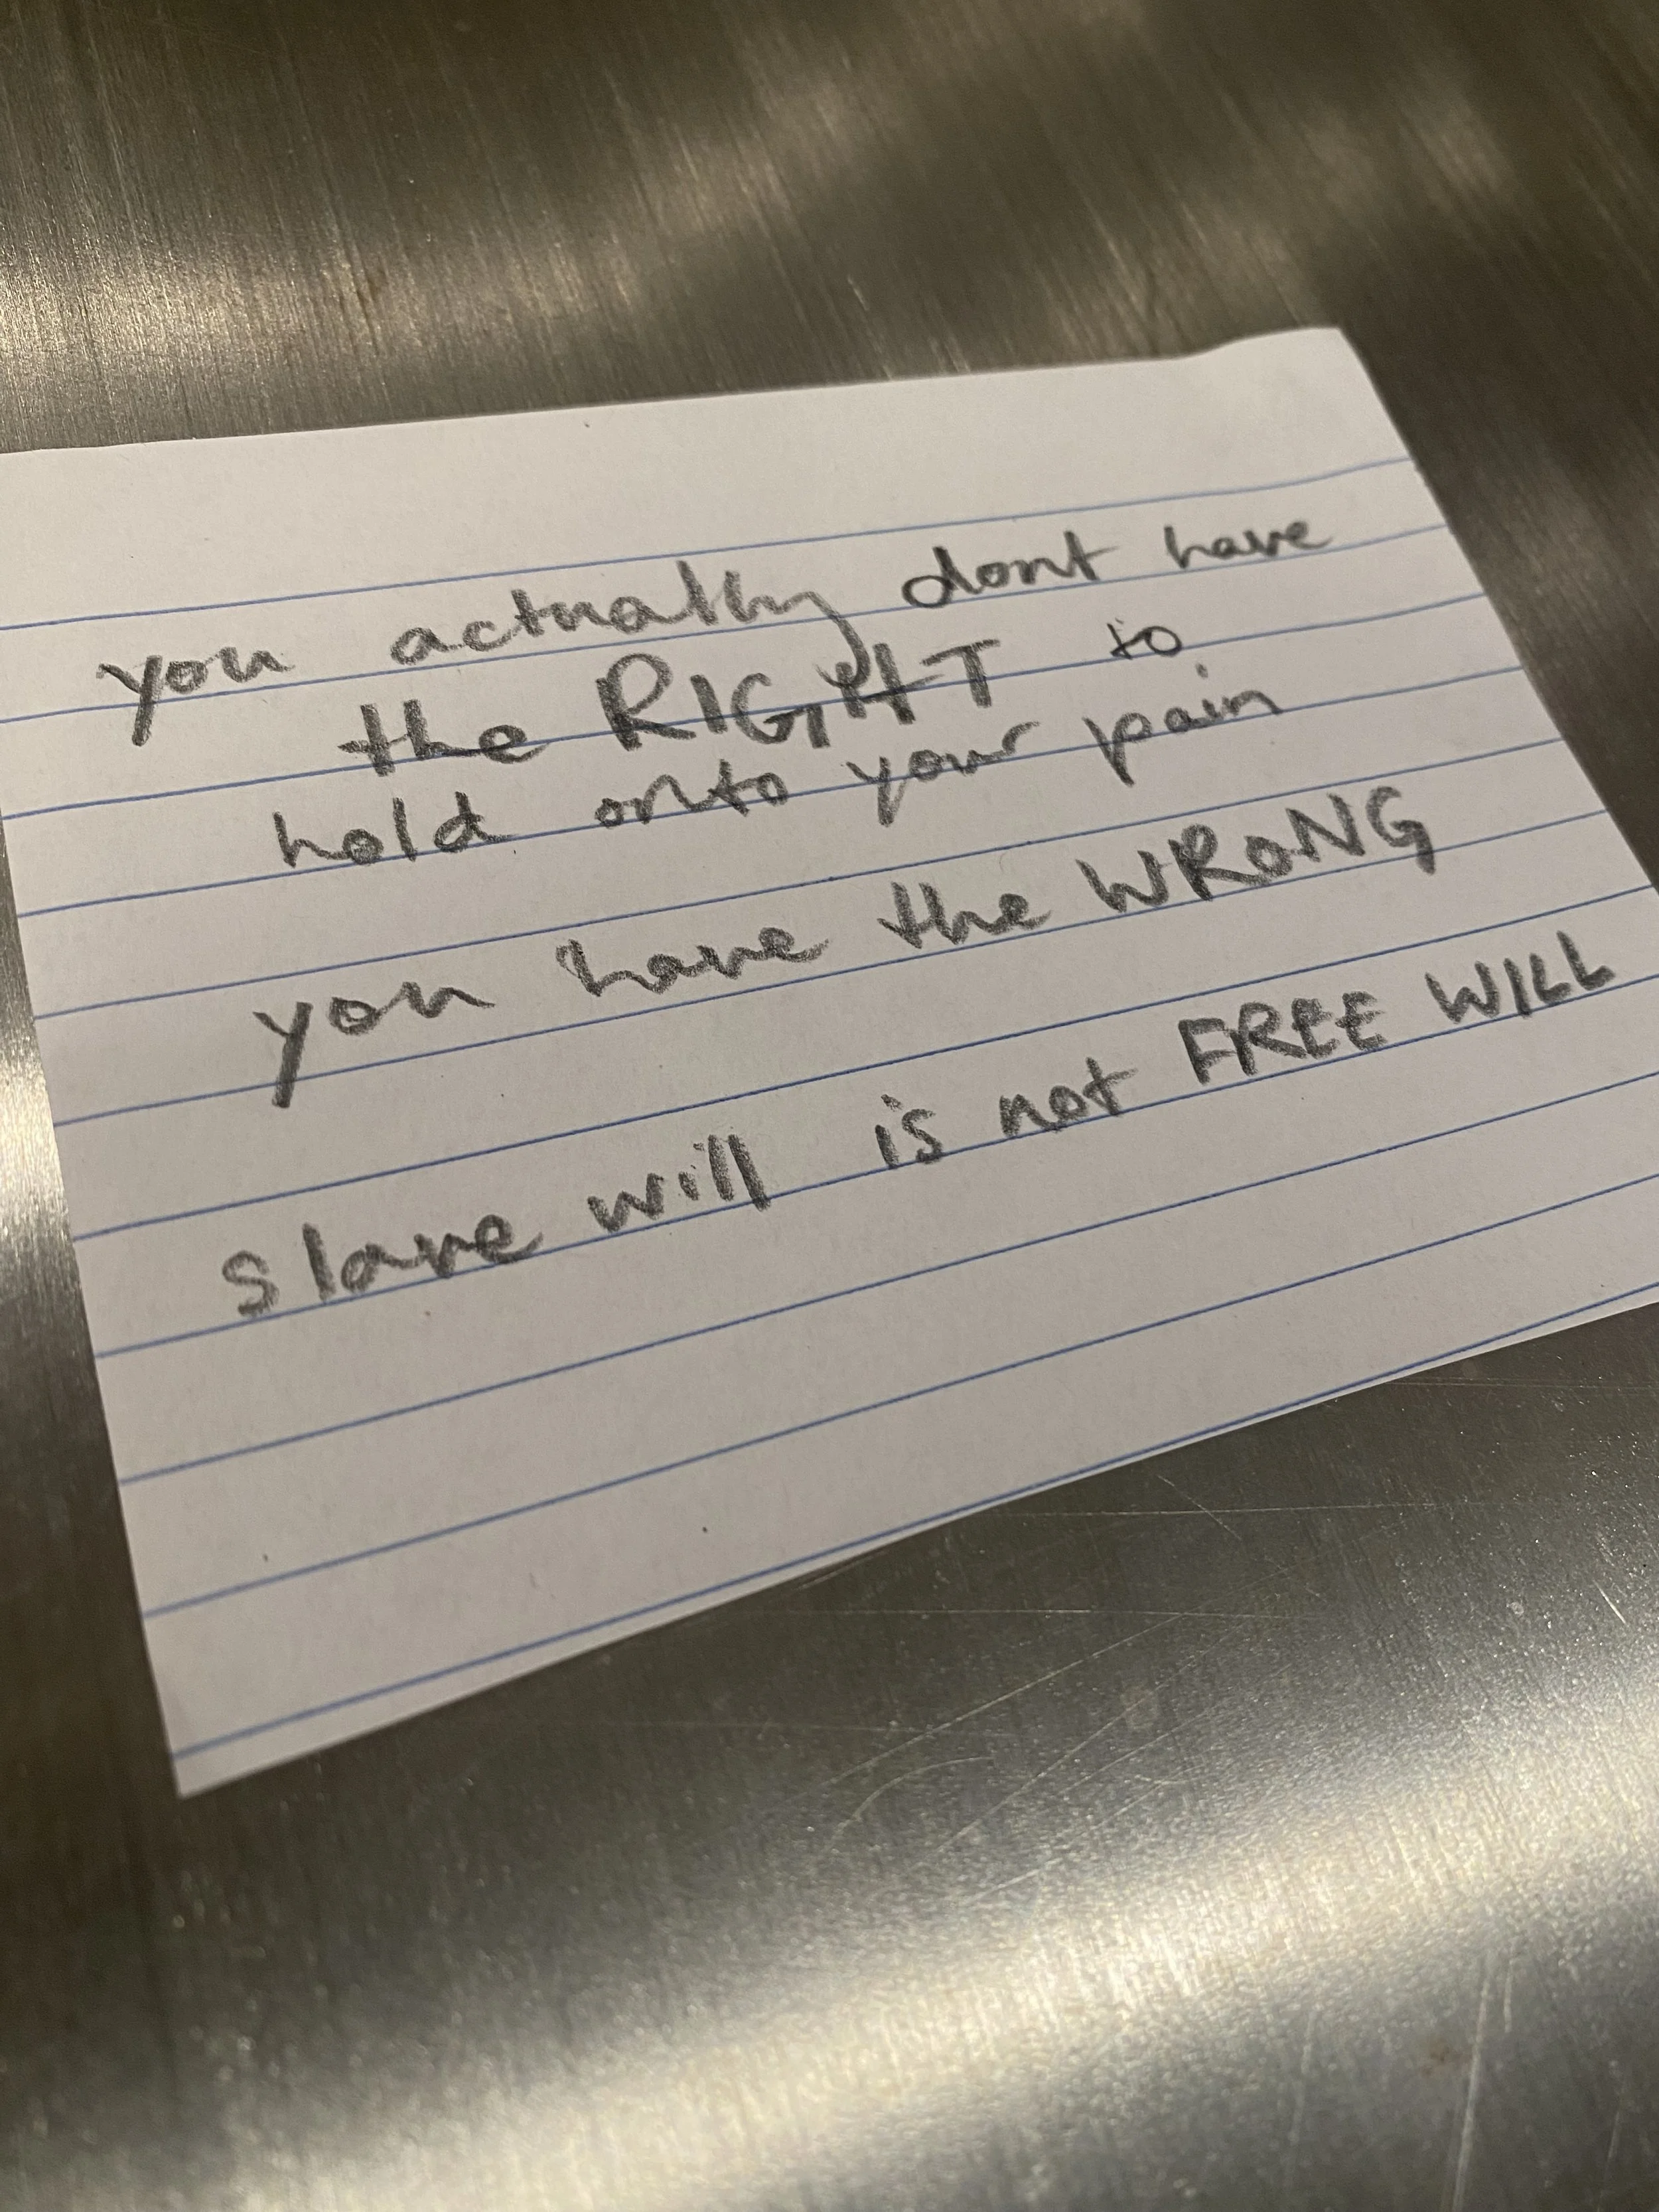 you actually dont have
the RIGHT to
hold onto your pain
you have the WRONG
slave will is not FREE WILL